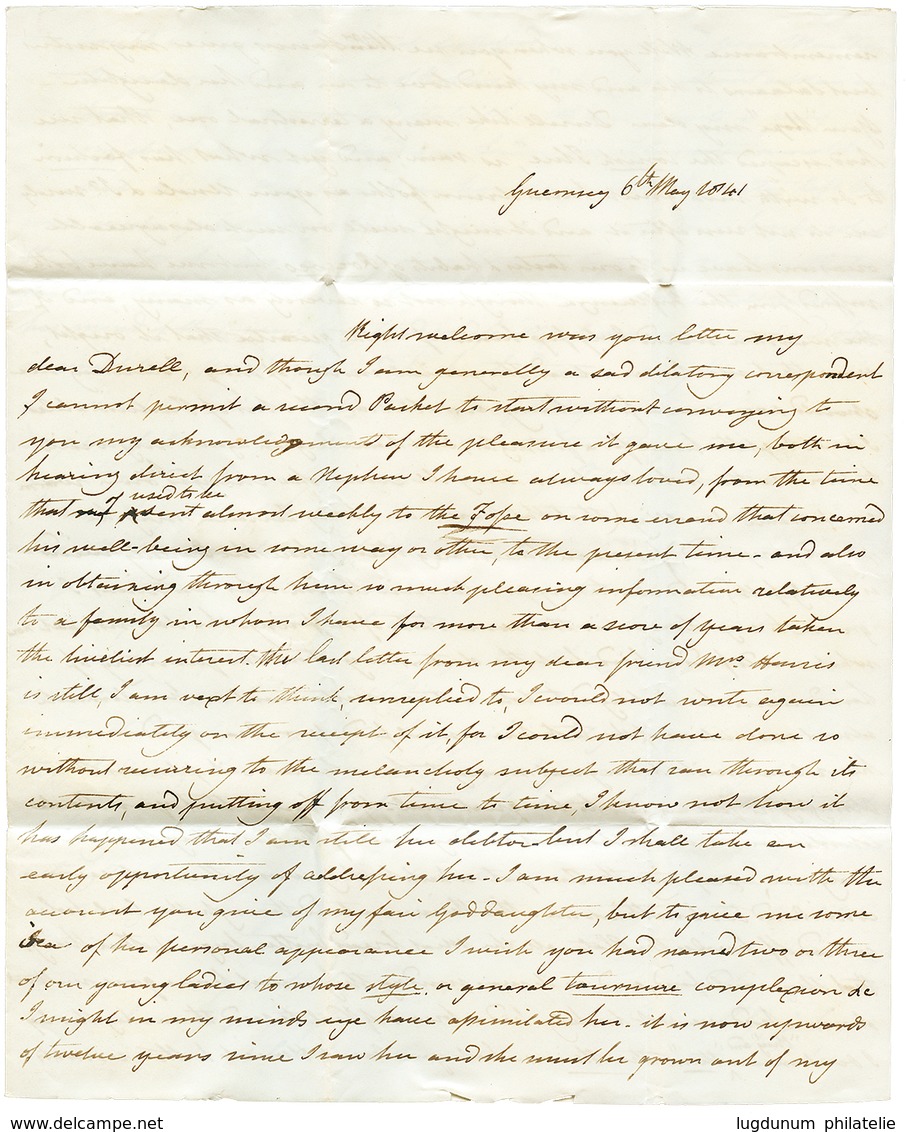 Guernsey 6th May 1841
Right welcome was your letter my
dear Durell, and though I am generally a sad dilatory correspondent
I cannot permit a second Packet to start without conveying to
you my acknowledgments of the pleasure it gave me, both in
hearing direct from a Nephew I have always loved, from the time
used to be
that I sent almost weekly to the Fope on some errand that concerned
his well-being in some way or other, to the present time - and also
in obtaining through him so much pleasing information relatively
to a family in whom I have for more than a score of years taken
the liveliest interest. The last letter from my dear friend Mrs Harris
is still, I am vext to think, unreplied to, I would not write again
immediately on the receipt of it, for I could not have done so
without recurring to the melancholy subject that ran through its
contents, and putting off from time to time, I know not how it
has happened that I am still her debtor - but I shall take an
early opportunity of addressing her - I am much pleased with the
account you give of my fair Goddaughter, but to give me some
idea of her personal appearance I wish you had named two or three
of our young ladies to whose style, or general tournure complexion &c
I might in my minds eye have assimilated her - it is now upwards
of twelve years since I saw her and she must be grown out of my
www.delcampe.net
lugdunum philatelie